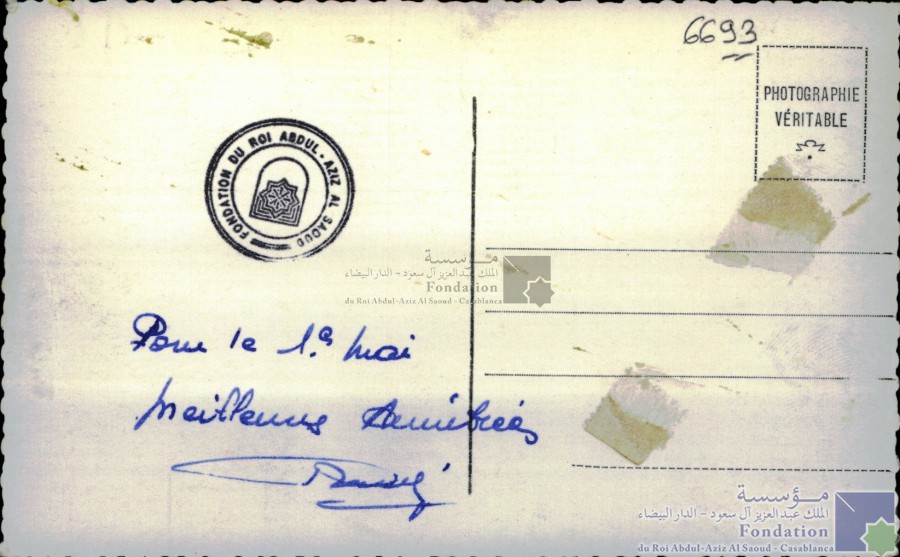 6693
PHOTOGRAPHIE
VÉRITABLE
FONDATION DU ROI ABDUL-AZIZ AL SAOUD
مؤسسة
الملك عبد العزيز آل سعود - الدار البيضاء
Fondation
du Roi Abdul-Aziz Al Saoud - Casablanca
Pour le 1er Mai
Meilleures Amitiés
مؤسسة
الملك عبد العزيز آل سعود - الدار البيضاء
Fondation
du Roi Abdul-Aziz Al Saoud - Casablanca